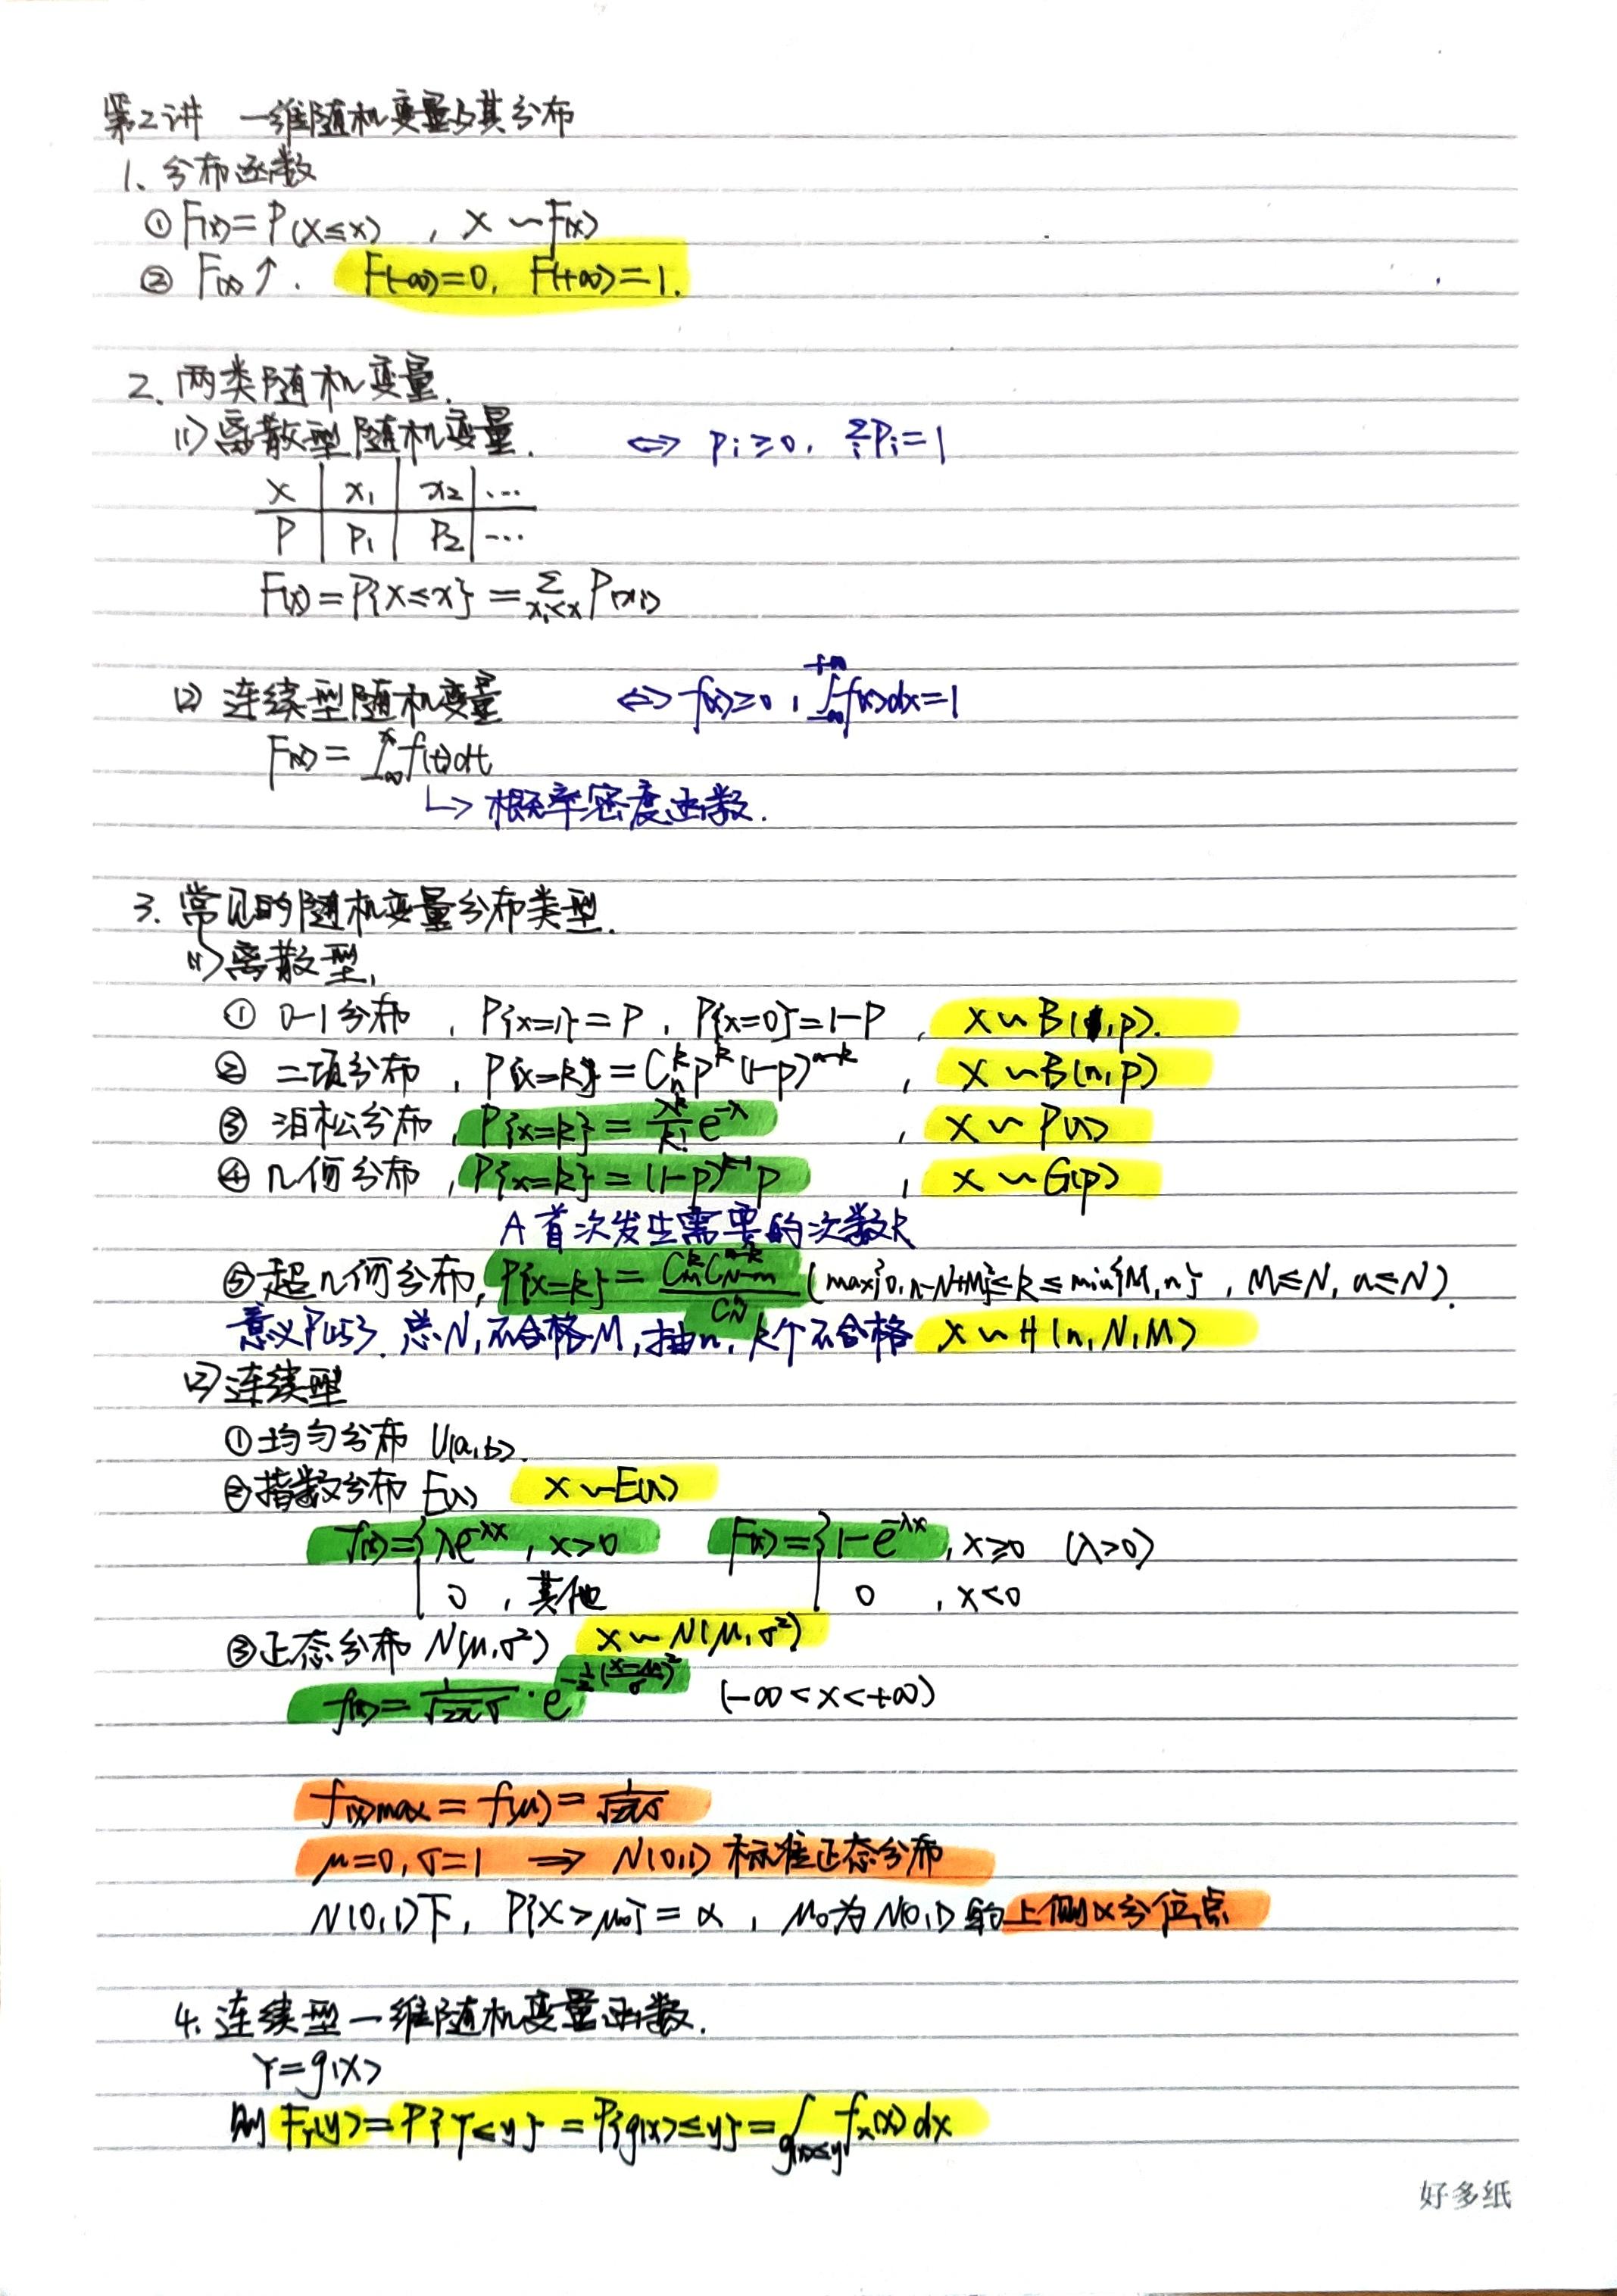 第2讲 一维随机变量与其分布
1、分布函数
① F(x)=P(X≤x) , X ~ F(x)
② F(x)↑. F(-∞)=0, F(+∞)=1.
2、两类随机变量.
(1)离散型随机变量. ⇔ pi≥0, ∑i Pi=1
X | x1 | x2 | ...
P | P1 | P2 | ...
F(x)=P{X≤x}=∑xi≤x P(xi)
(2) 连续型随机变量 ⇔ f(x)≥0, ∫-∞^+∞ f(x)dx=1
F(x)=∫-∞^x f(t)dt
↳ 概率密度函数.
3.常见的随机变量分布类型.
(1)离散型.
① 0-1分布 , P{X=1}=P, P{X=0}=1-P , X~B(1,p).
② 二项分布 , P{X=k}=C_n^k p^k (1-p)^(n-k) , X~B(n,p)
③ 泊松分布, P{X=k}=λ^k/k! e^-λ , X~P(λ)
④ 几何分布, P{X=k}=(1-p)^(k-1) p , X~G(p)
A首次发生需要的次数k
⑤超几何分布, P{X=k}=C_M^k C_(N-M)^(n-k) / C_N^n (max{0,n-N+M}≤k≤min{M,n}, M≤N, n≤N).
意义P(15). 总N,不合格M,抽n, k个不合格 X~H(n,N,M)
(2)连续型
①均匀分布 U(a,b).
②指数分布 E(λ) X~E(λ)
f(x)={λe^-λx , x>0 F(x)={1-e^-λx, x≥0 (λ>0)
0 , 其他 0 , x<0
③正态分布 N(μ,σ²) X~N(μ,σ²)
f(x)=1/(√2π σ)·e^(-½((x-μ)/σ)²) (-∞<x<+∞)
f(x)max=f(μ)=1/(√2π σ)
μ=0,σ=1 ⇒ N(0,1) 标准正态分布
N(0,1)下, P{X>μ0}=α, μ0为N(0,1)的上侧α分位点
4、连续型一维随机变量函数.
Y=g(X)
则 F_Y(y)=P{Y≤y}=P{g(X)≤y}=∫g(x)≤y f_X(x)dx
好多纸